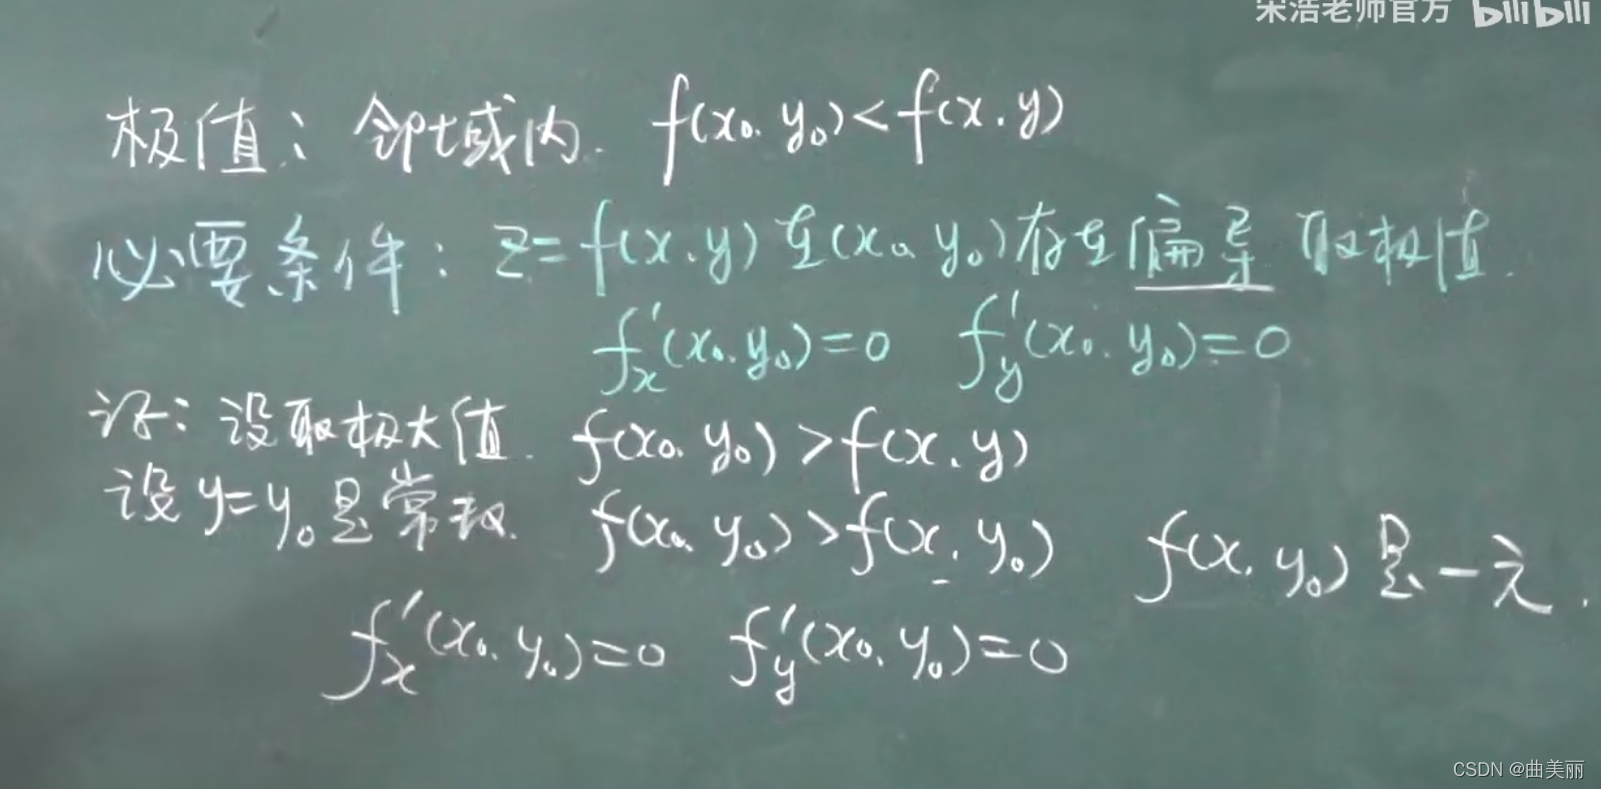 宋浩老师官方 bilibili
极值：邻域内. f(x₀.y₀)<f(x.y)
必要条件：z=f(x.y)在(x₀ y₀)存在偏导 取极值.
f'ₓ(x₀.y₀)=0 f'y(x₀.y₀)=0
证：设取极大值. f(x₀.y₀)>f(x.y)
设y=y₀是常数. f(x₀.y₀)>f(x.y₀) f(x.y₀)是一元.
f'ₓ(x₀.y₀)=0 f'y(x₀.y₀)=0
CSDN @曲美丽